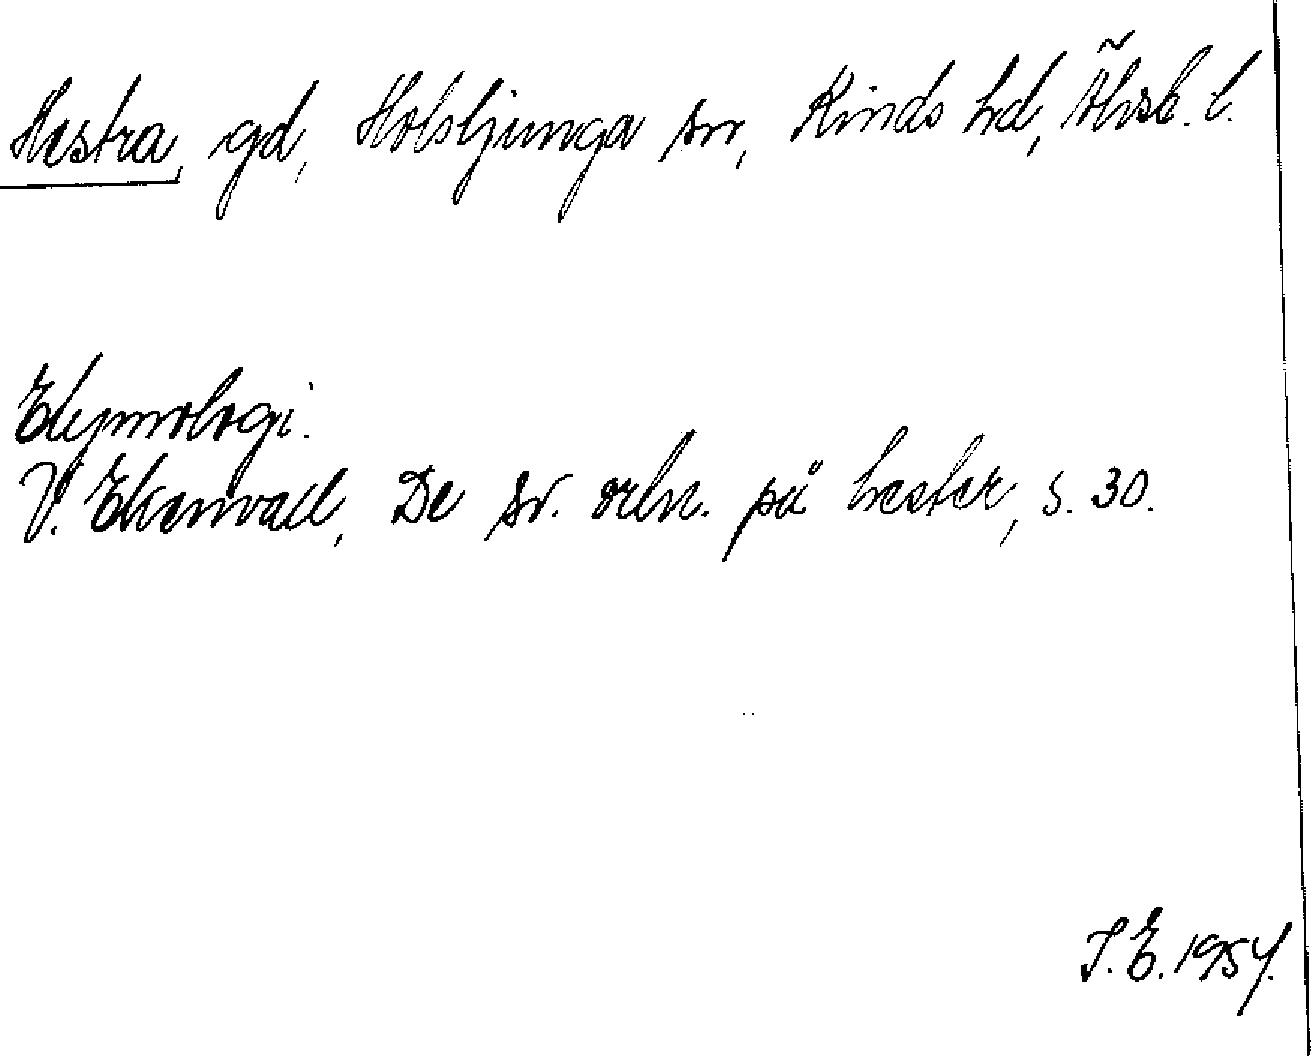 Hestra, gd, Holsljunga sn, Kinds hd, Älvsb. l.
Etymologi.
V. Ekenvall, De sv. ortn. på hester, s. 30.
I. E. 1954.